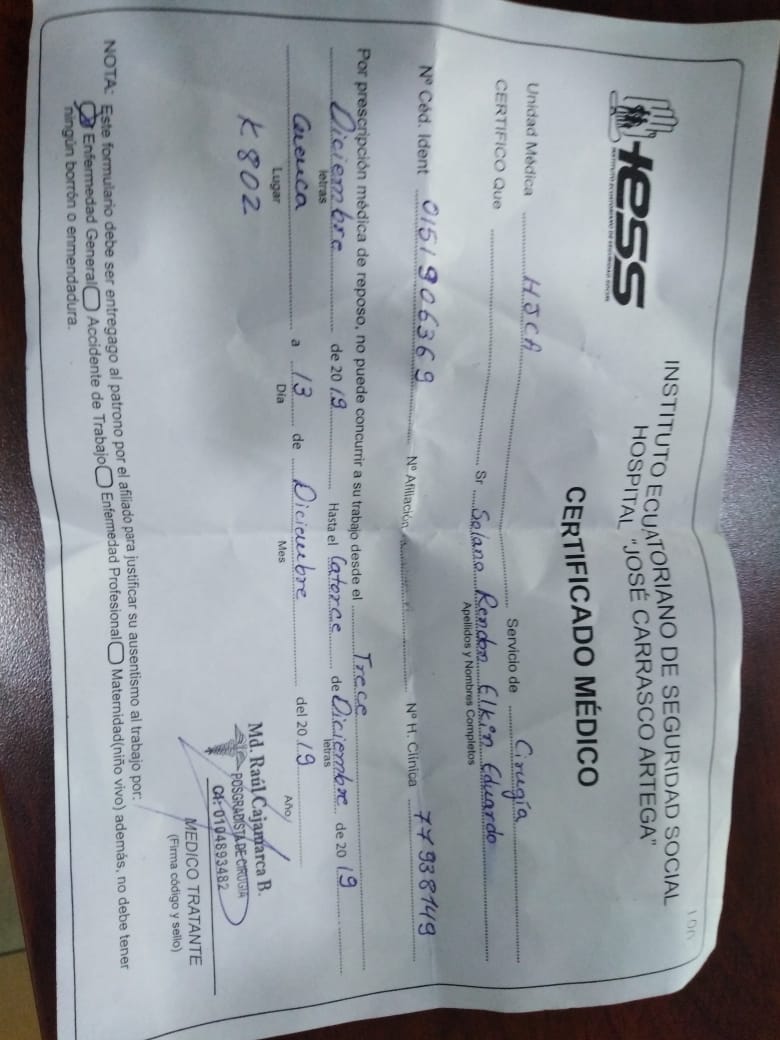 iess
INSTITUTO ECUATORIANO DE SEGURIDAD SOCIAL
INSTITUTO ECUATORIANO DE SEGURIDAD SOCIAL
HOSPITAL "JOSÉ CARRASCO ARTEGA"
CERTIFICADO MÉDICO
Unidad Médica HJCA Servicio de Cirugía
CERTIFICO Que Sr Solano Rendon Elkin Eduardo
Apellidos y Nombres Completos
Nº Céd. Ident 0151906369 Nº Afiliación Nº H. Clínica 77938149
Por prescripción médica de reposo, no puede concurrir a su trabajo desde el Trece
Diciembre de 2019 Hasta el Catorce de Diciembre de 2019
letras letras
Cuenca a 13 de Diciembre del 2019
Lugar Día Mes Año
K802
Md. Raúl Cajamarca B.
POSGRADISTA DE CIRUGIA
CA: 0104893482
MEDICO TRATANTE
(Firma código y sello)
NOTA: Este formulario debe ser entregago al patrono por el afiliado para justificar su ausentismo al trabajo por:
Enfermedad General Accidente de Trabajo Enfermedad Profesional Maternidad(niño vivo) además, no debe tener
ningún borrón o enmendadura.